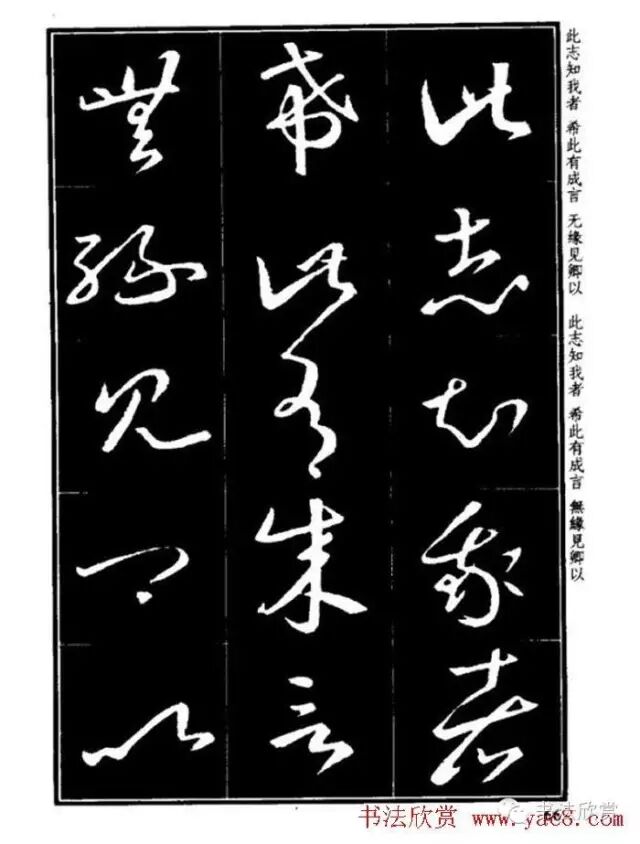 此志知我者
希此有成言
無緣見卿以
此志知我者 希此有成言 无缘见卿以 此志知我者 希此有成言 無緣見卿以
66
书法欣赏
书法欣赏 www.yac8.com